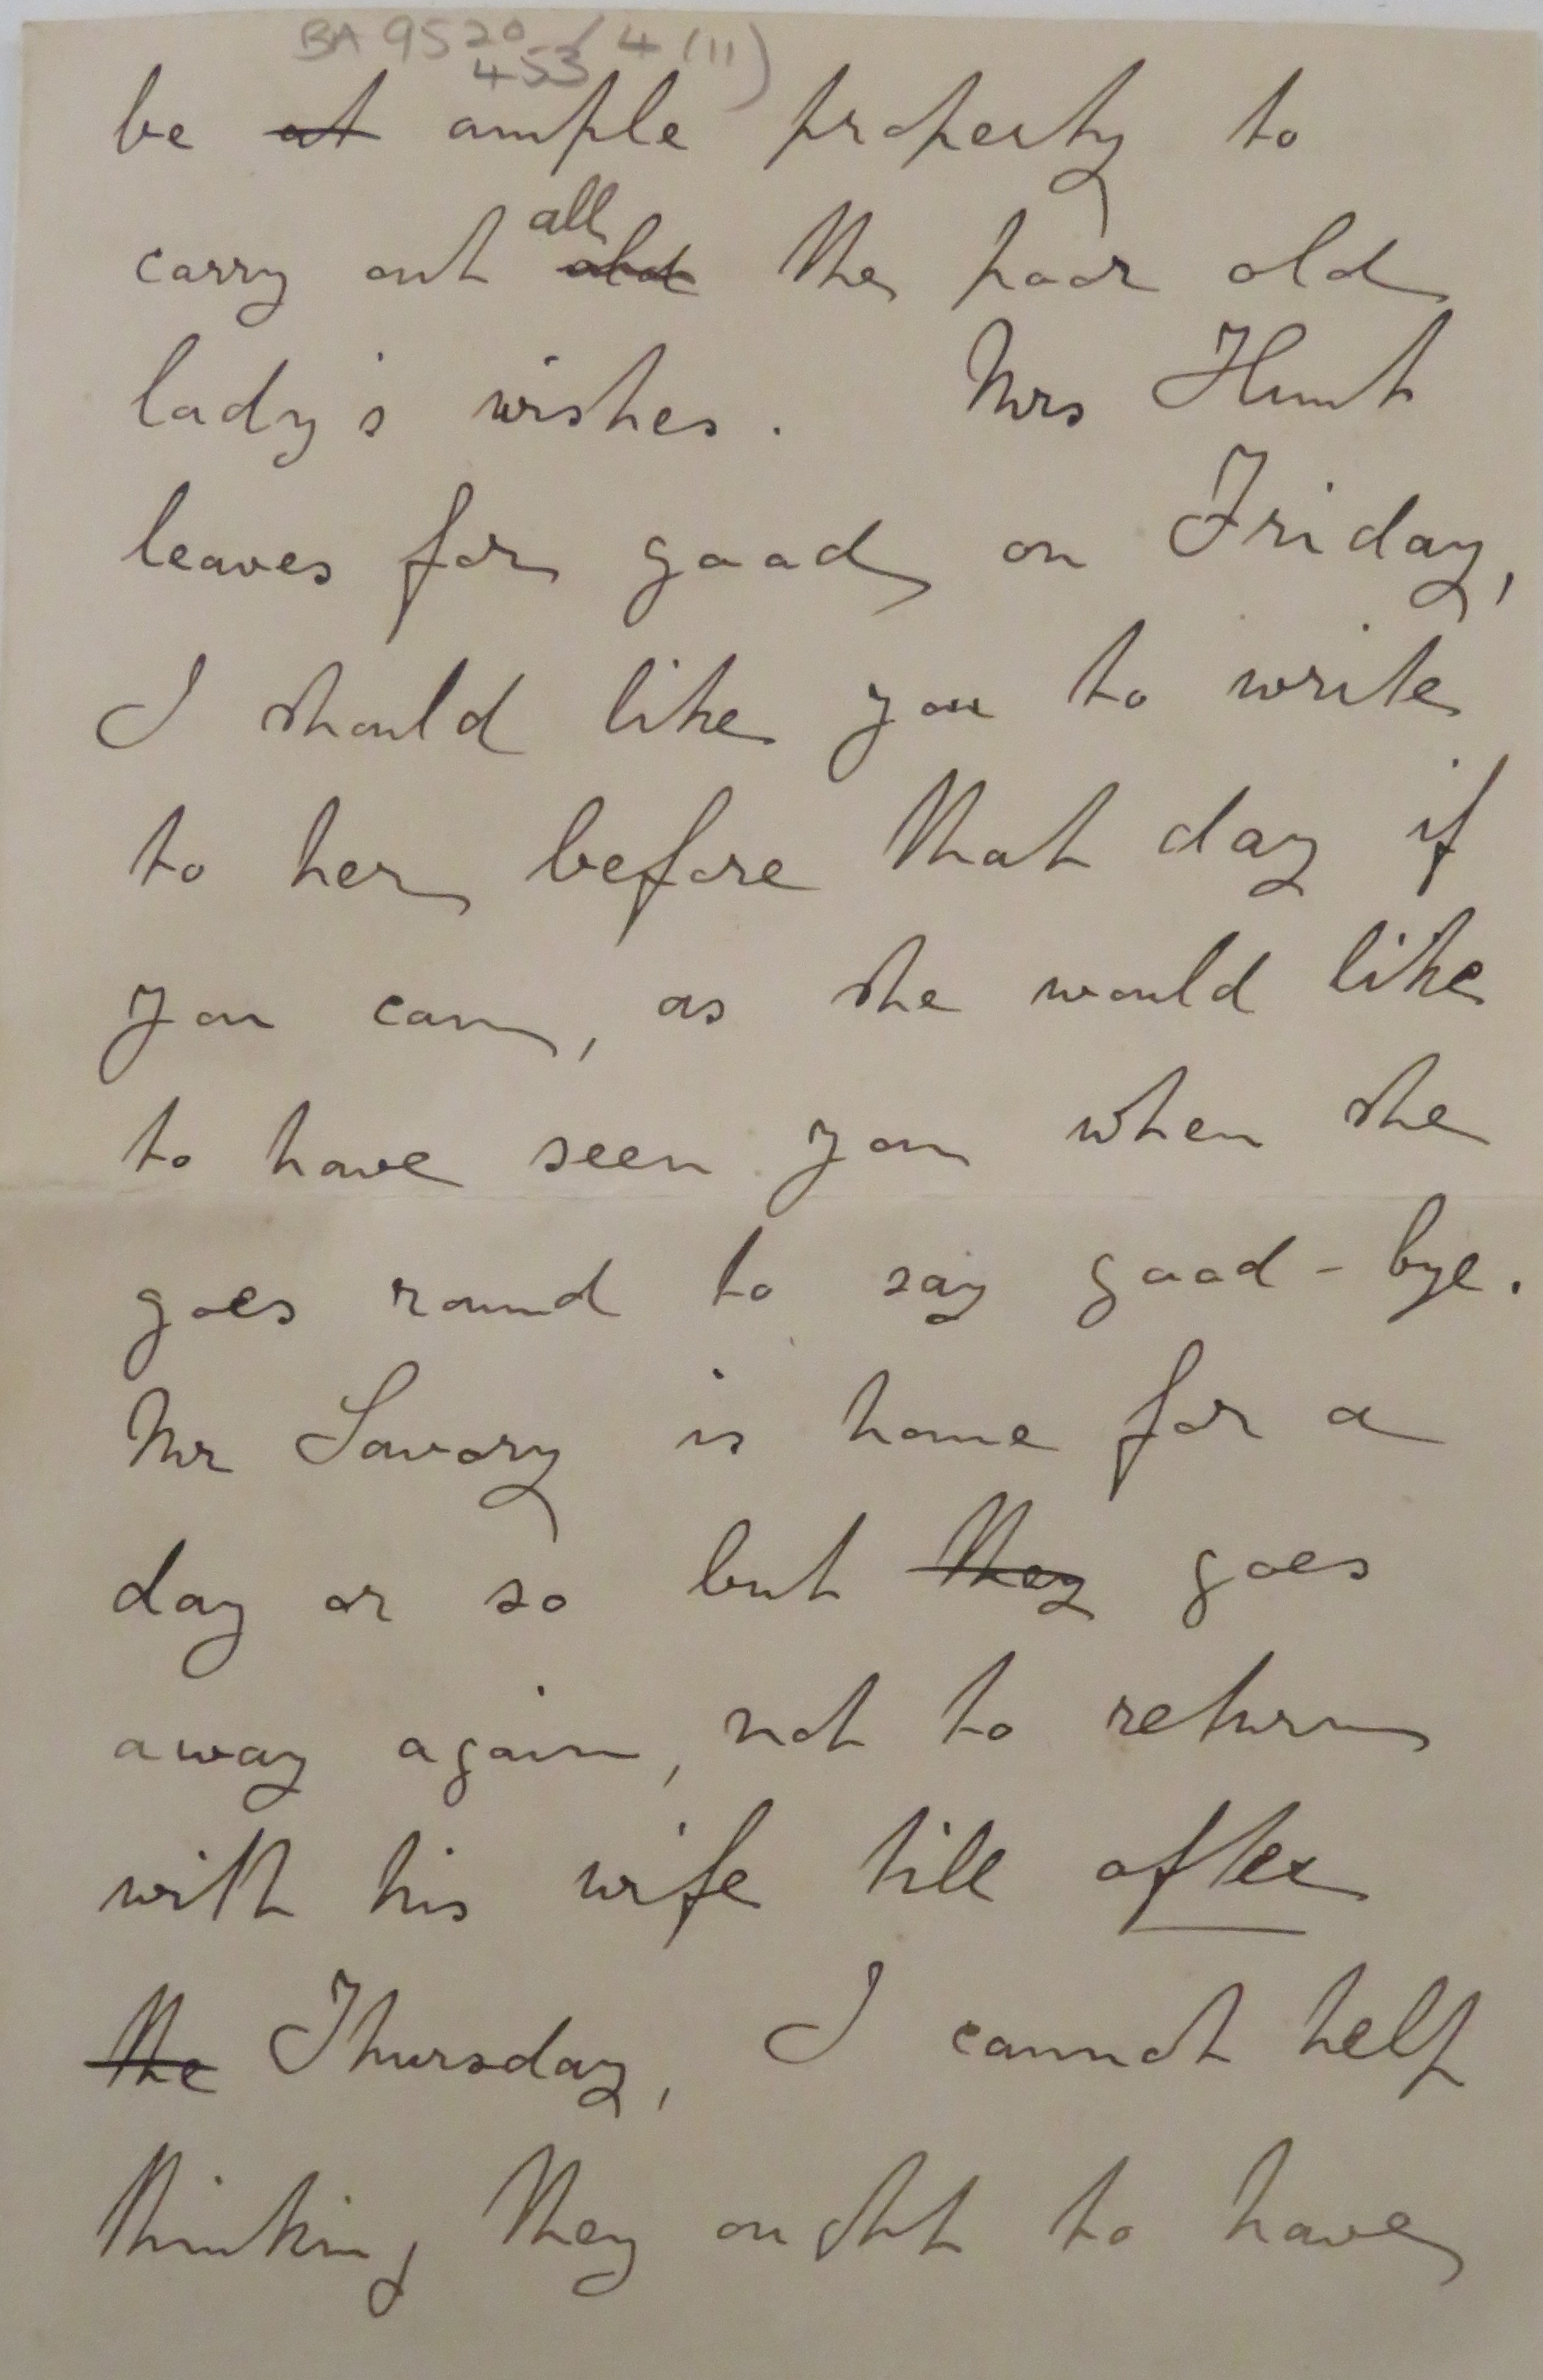 BA 9520 / 4 (11)
453
be at ample property to
all
carry out old the poor old
lady's wishes. Mrs Hunt
leaves for good on Friday,
I should like you to write
to her before that day if
you can, as she would like
to have seen you when she
goes round to say good-bye.
Mr Savory is home for a
day or so but they goes
away again, not to return
with his wife till after
the Thursday, I cannot help
thinking they ought to have